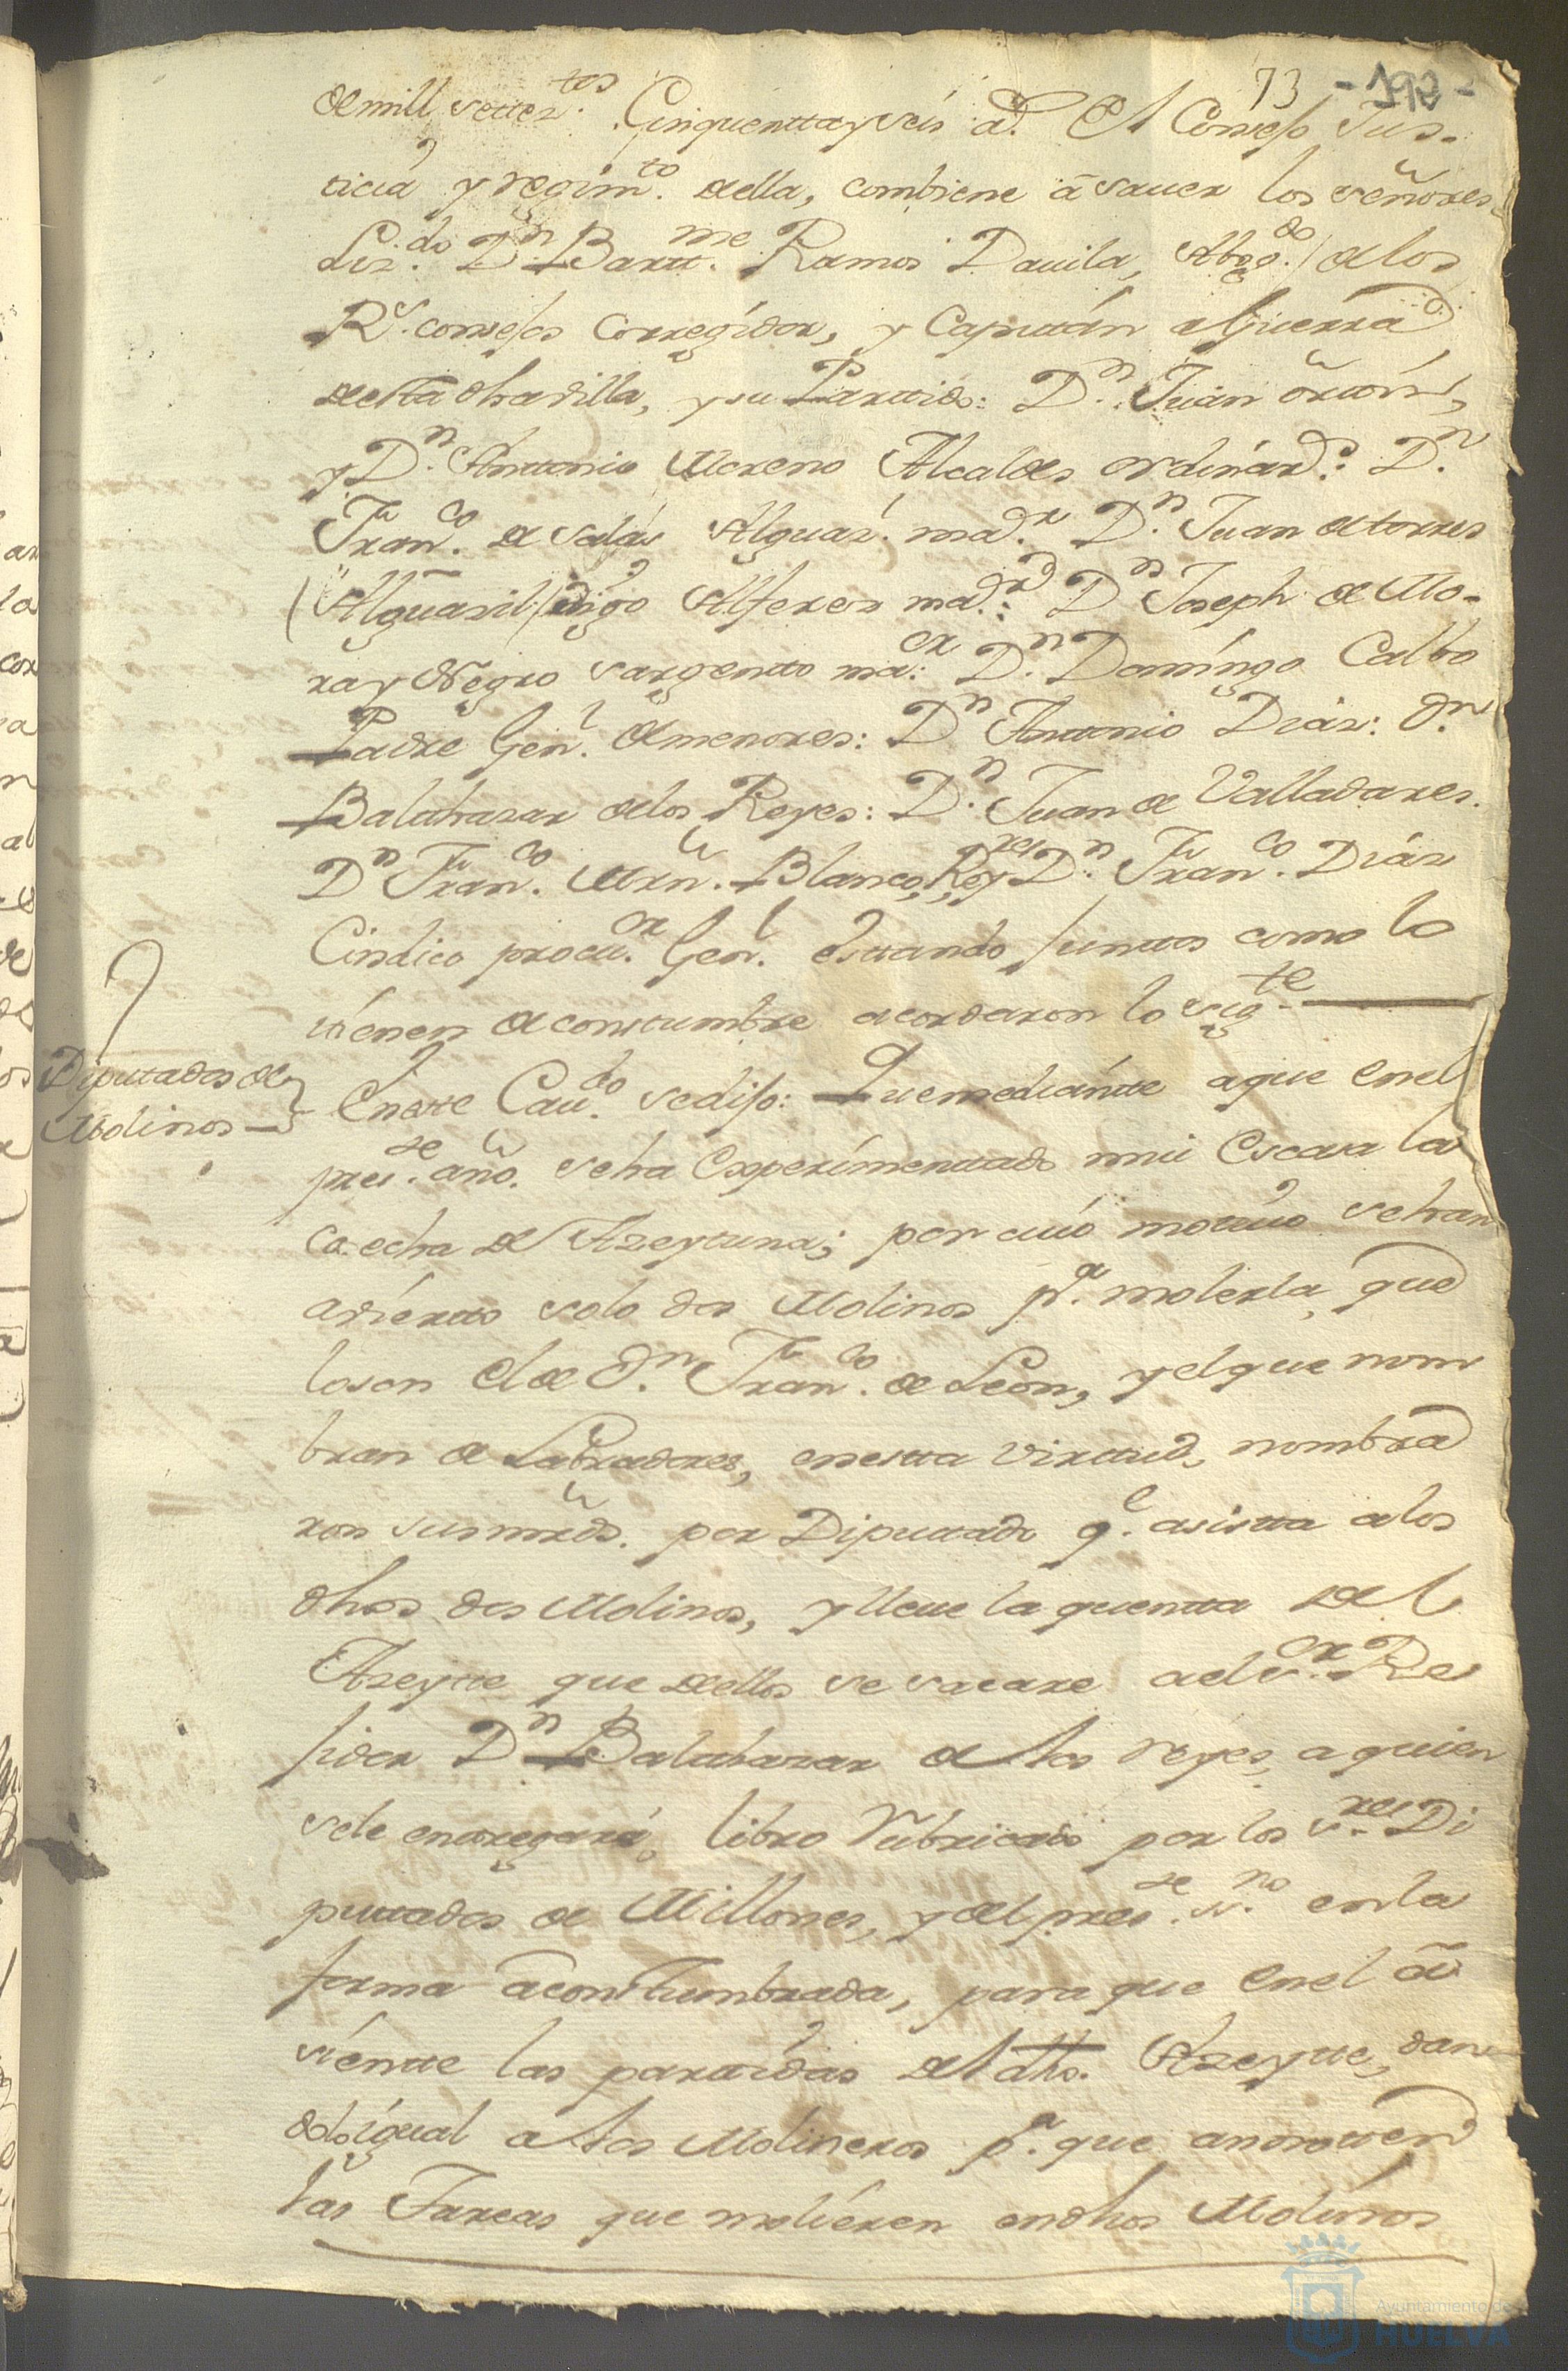 73 - 192 -
de mill settez.tos Cinquentta y seis a.s El Consejo Jus-
ticia y regim.to della, combiene â sauer los señores
Liz.do D.n Bartt.me Ramos Dauila, Abog.do de los
R.s consejos Corregidor, y Capittán aGuerra
desta dha villa, y su Parttido: D.n Juan
y D.n Anttonio Moreno Alcaldes ordinar.s: D.n
Fran.co de salas Alguaz. ma.r D.n Juan de torres
(Alguasil) digo Alferez ma.r: D.n Joseph de Mo-
ra y Negro sargentto ma.or: D.n Domingo Calbo
Padre Gen.l de menores: D.n Anttonio Diaz: d.n
Balthazar de los Reyes: D.n Juan de Valladares.
D.n Fran.co Mrn. Blanco, Reg.res y D.n Fran.co Diáz
Cindico procu.or Gen.l estando junttos como lo
tienen de constumbre acordaron lo sig.te
Diputtados de
Molinos
En este Cau.do se dijo: Que mediántte a que en el
pres.te año. se ha experimenttado mui Escasa la
cosecha de Azeytuna; por cuio motiuo se han
abierto solo dos Molinos p.a molerla, que
lo son el de d.n Fran.co de Leon, y el que nom
bran de Labradores, en estta virttud, nombra
ron sus mrds. por Diputtado q.e asistta a los
dhos dos Molinos, y lleue la quentta del
Azeytte que dellos se sacare al s.or Re
jidor D.n Balthazar de los reyes, a quien
se le entregará, libro Rubricado por los s.res Di
puttados de Millones, y del pres.te ss.no en la
forma acontumbrada, para que en el a
siéntte las parttidas del dho. Azeytte, dan
do igual a los Molineros p.a que anotten
las Tareas que moliéren en dhos Molinos
Ayuntamiento de
HUELVA